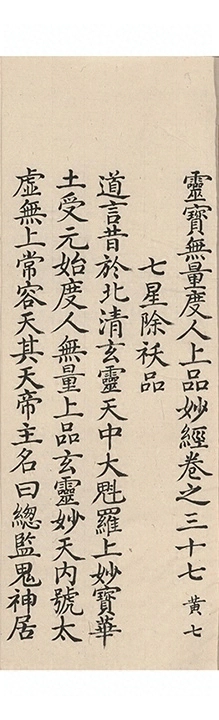 靈寶無量度人上品妙經卷之三十七 黃七
七星除祅品
道言昔於北清玄靈天中大魁羅上妙寶華
土受元始度人無量上品玄靈妙天內號太
虛無上常容天其天帝主名曰總監鬼神居